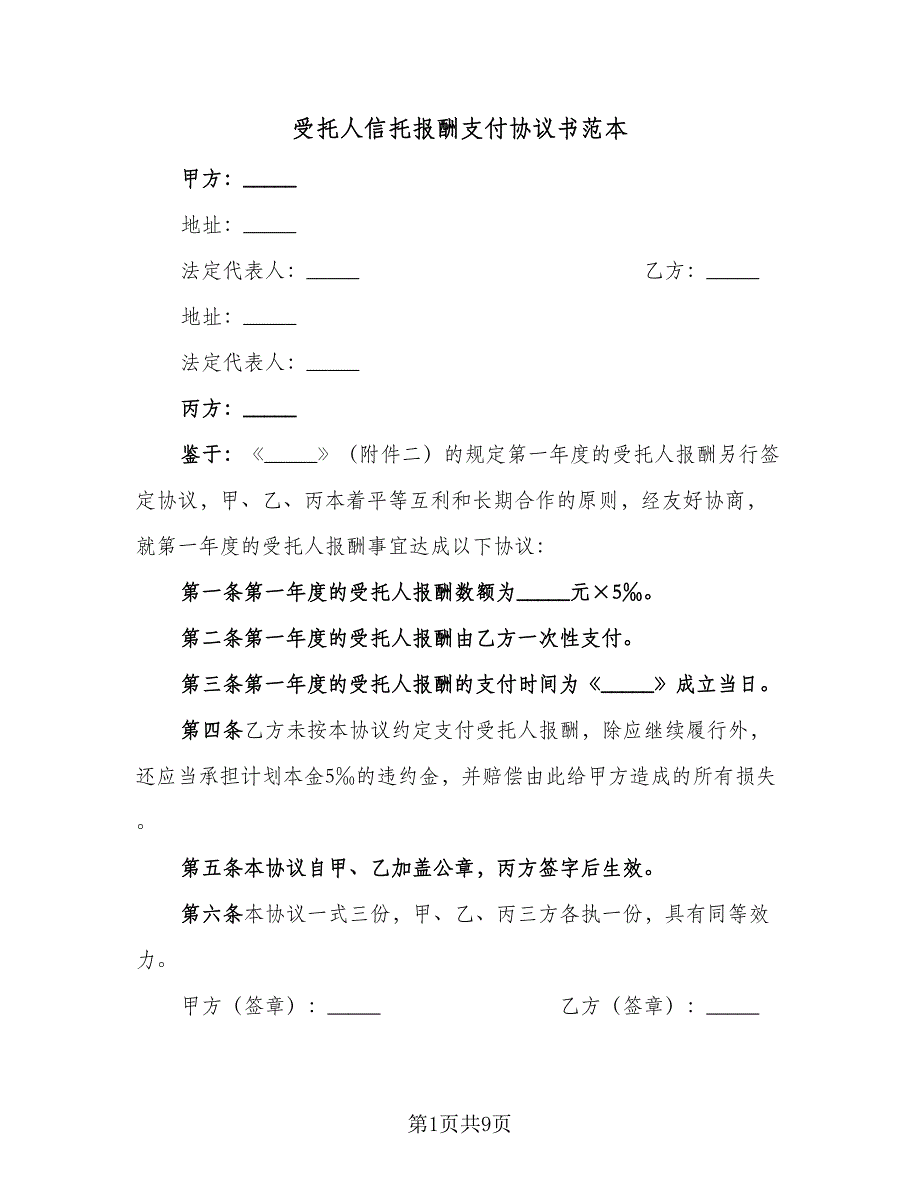 受托人信托报酬支付协议书范本
甲方：_____
地址：_____
法定代表人：_____ 乙方：_____
地址：_____
法定代表人：_____
丙方：_____
鉴于：《_____》（附件二）的规定第一年度的受托人报酬另行签
定协议，甲、乙、丙本着平等互利和长期合作的原则，经友好协商，
就第一年度的受托人报酬事宜达成以下协议：
第一条第一年度的受托人报酬数额为_____元×5‰。
第二条第一年度的受托人报酬由乙方一次性支付。
第三条第一年度的受托人报酬的支付时间为《_____》成立当日。
第四条乙方未按本协议约定支付受托人报酬，除应继续履行外，
还应当承担计划本金5‰的违约金，并赔偿由此给甲方造成的所有损失
。
第五条本协议自甲、乙加盖公章，丙方签字后生效。
第六条本协议一式三份，甲、乙、丙三方各执一份，具有同等效
力。
甲方（签章）：_____ 乙方（签章）：_____
第1页共9页